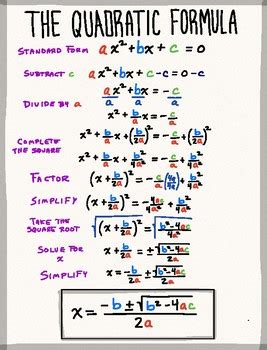 THE QUADRATIC FORMULA
STANDARD FORM ax² + bx + c = 0
SUBTRACT c ax² + bx + c - c = 0 - c
DIVIDE BY a ax²/a + bx/a = -c/a
x² + b/a x = -c/a
COMPLETE THE SQUARE x² + b/a x + (b/2a)² = -c/a + (b/2a)²
x² + b/a x + b²/4a² = -c/a + b²/4a²
FACTOR (x + b/2a)² = -c/a (4a/4a) + b²/4a²
SIMPLIFY (x + b/2a)² = -4ac/4a² + b²/4a²
TAKE THE SQUARE ROOT √(x + b/2a)² = √b²-4ac/4a²
SOLVE FOR x x + b/2a = ±√b²-4ac/2a
SIMPLIFY x = -b/2a ± √b²-4ac/2a
x = -b ± √b²-4ac/2a